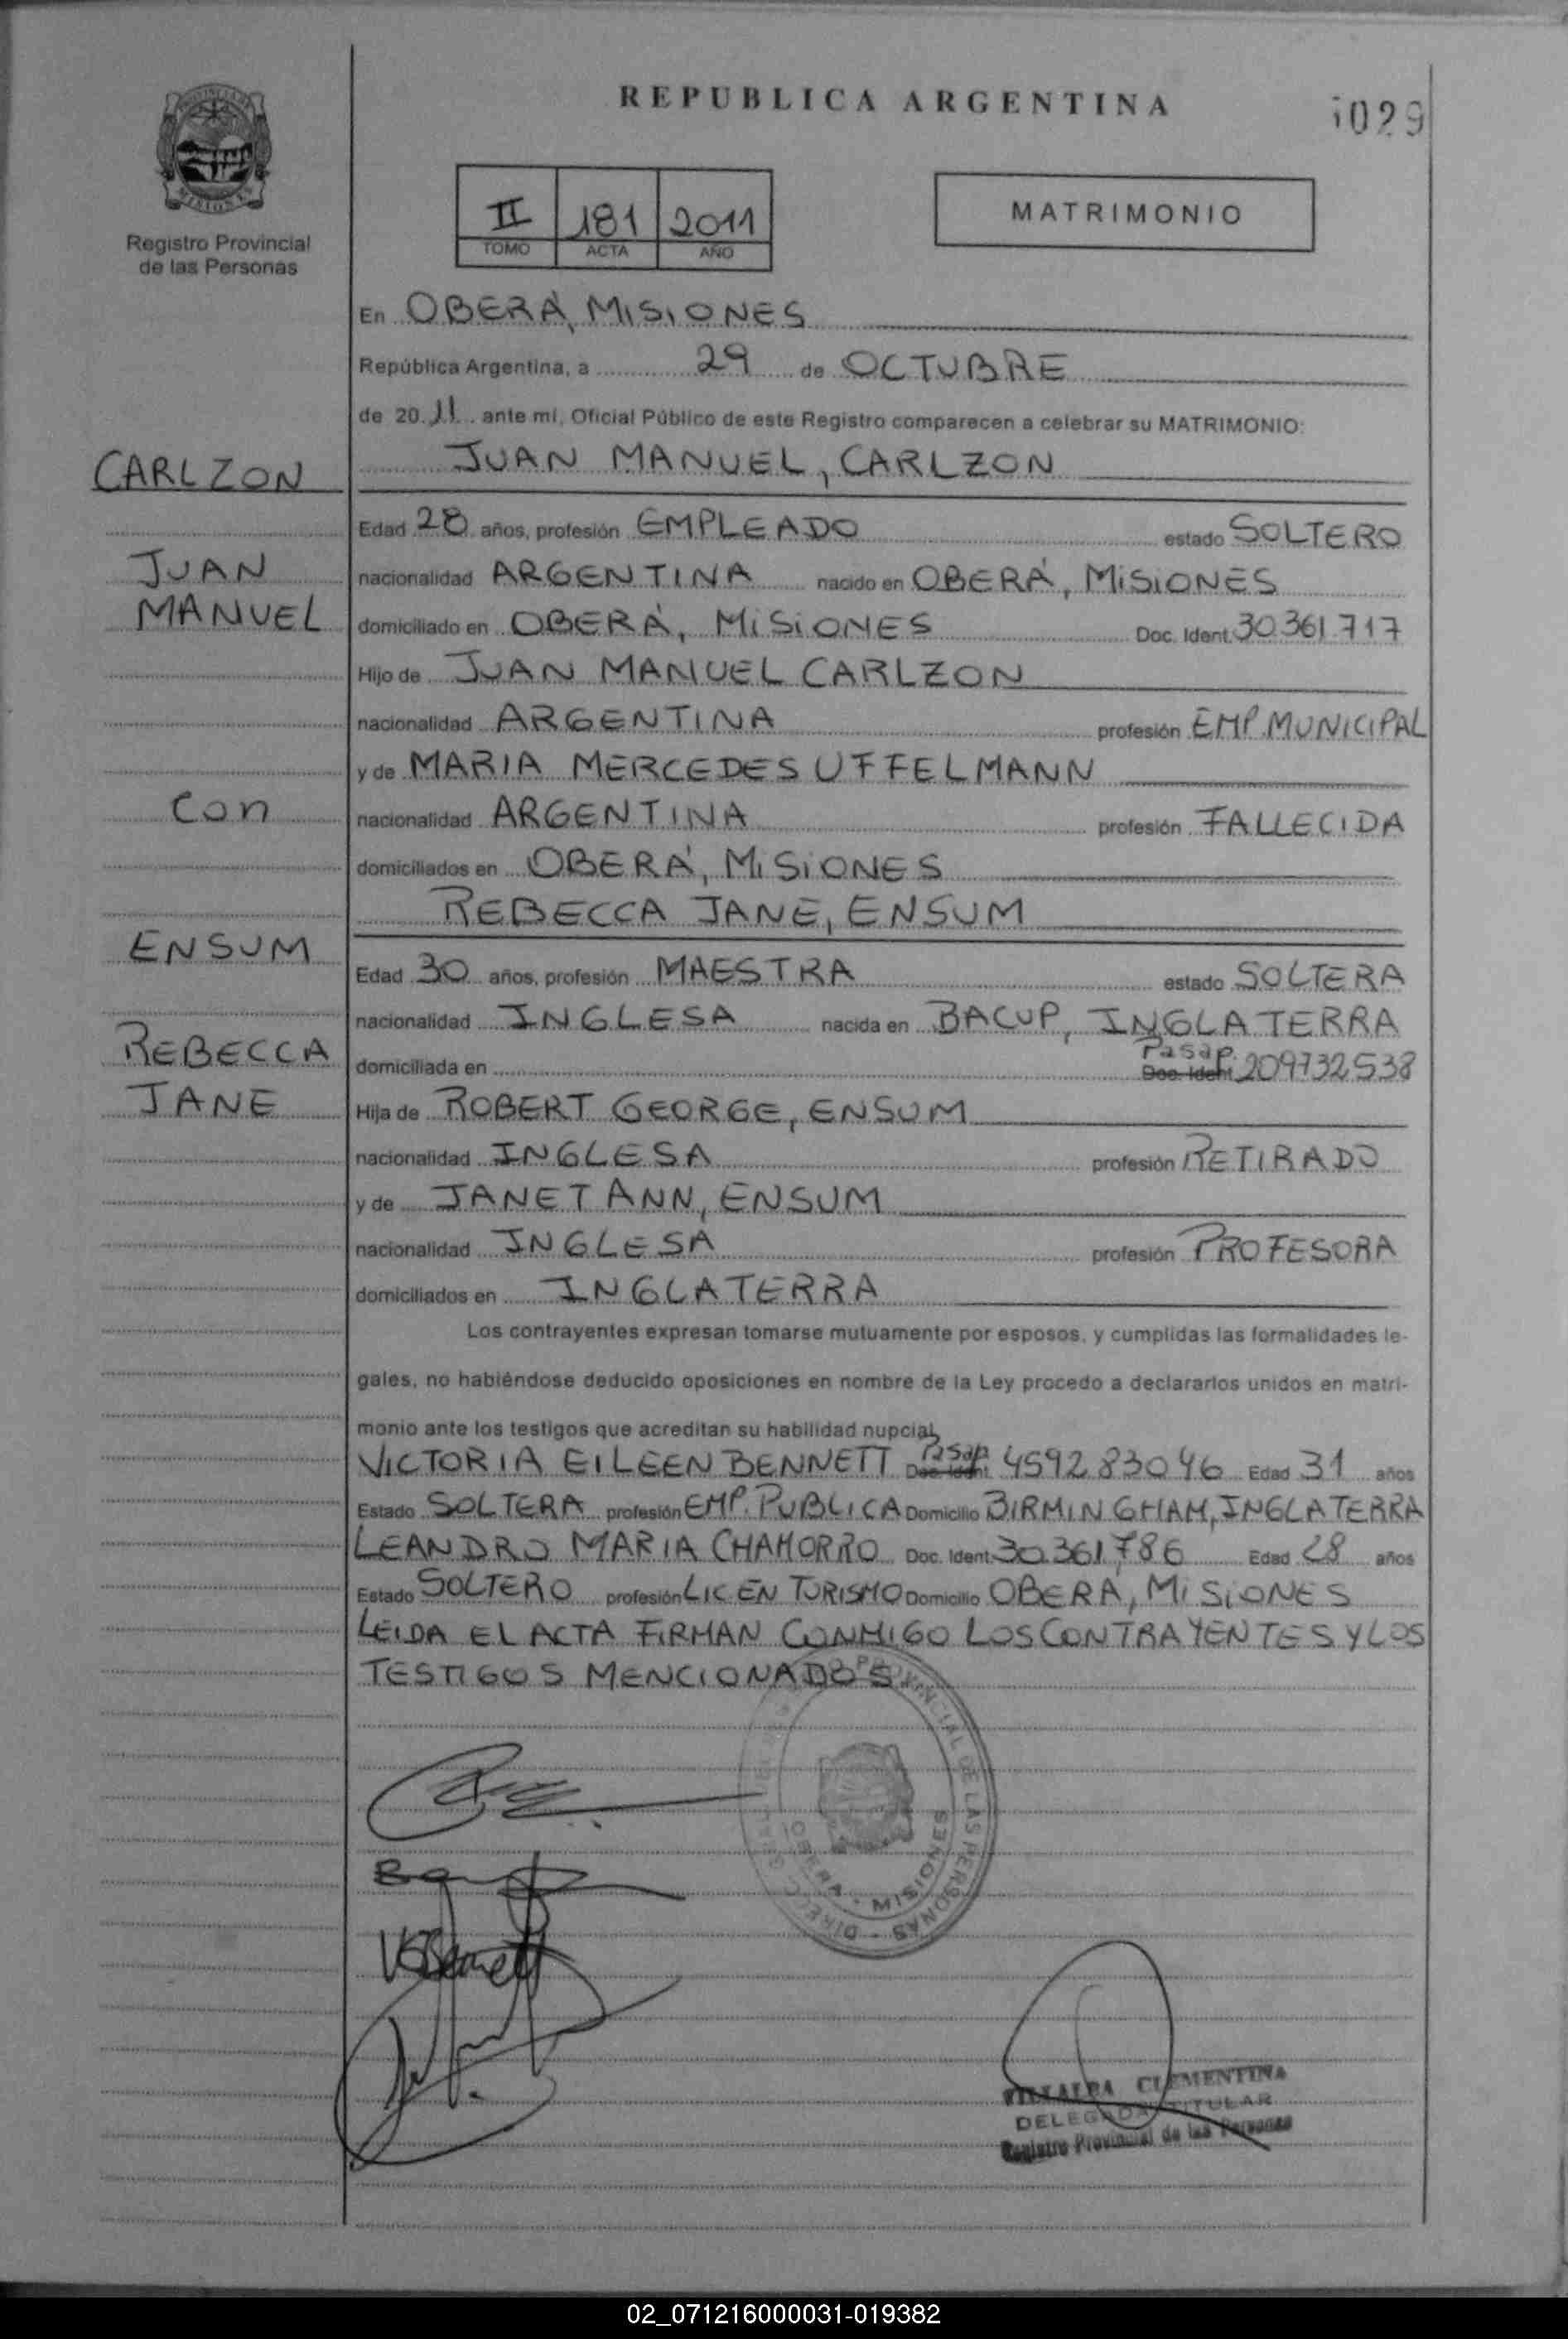 REPUBLICA ARGENTINA
029
PROVINCIA DE
MISIONES
Registro Provincial
de las Personas
II 181 2011
TOMO ACTA AÑO
MATRIMONIO
En OBERÁ, MISIONES
República Argentina, a 29 de OCTUBRE
de 20 11 ante mí, Oficial Público de este Registro comparecen a celebrar su MATRIMONIO:
CARLZON
JUAN MANUEL, CARLZON
Edad 28 años, profesión EMPLEADO estado SOLTERO
JUAN
nacionalidad ARGENTINA nacido en OBERÁ, MISIONES
MANUEL
domiciliado en OBERÁ, MISIONES Doc. Ident. 30.361.717
Hijo de JUAN MANUEL CARLZON
nacionalidad ARGENTINA profesión EMP. MUNICIPAL
y de MARIA MERCEDES UFFELMANN
con
nacionalidad ARGENTINA profesión FALLECIDA
domiciliados en OBERÁ, MISIONES
REBECCA JANE, ENSUM
ENSUM
Edad 30 años, profesión MAESTRA estado SOLTERA
nacionalidad INGLESA nacida en BACUP, INGLATERRA
REBECCA
Pasap.
domiciliada en Doc. Ident 209732538
JANE
Hija de ROBERT GEORGE, ENSUM
nacionalidad INGLESA profesión RETIRADO
y de JANET ANN, ENSUM
nacionalidad INGLESA profesión PROFESORA
domiciliados en INGLATERRA
Los contrayentes expresan tomarse mutuamente por esposos, y cumplidas las formalidades le-
gales, no habiéndose deducido oposiciones en nombre de la Ley procedo a declararlos unidos en matri-
monio ante los testigos que acreditan su habilidad nupcial
Pasap
VICTORIA EILEEN BENNETT Doc. Ident. 459283046 Edad 31 años
Estado SOLTERA profesión EMP. PUBLICA Domicilio BIRMINGHAM, INGLATERRA
LEANDRO MARIA CHAMORRO Doc. Ident. 30.361.786 Edad 28 años
Estado SOLTERO profesión LIC. EN TURISMO Domicilio OBERA, MISIONES
LEIDA EL ACTA FIRMAN CONMIGO LOS CONTRAYENTES Y LOS
TESTIGOS MENCIONADOS
PROVINCIAL DE LAS PERSONAS
OBERA - MISIONES
VEBennett
VILLALBA CLEMENTINA
DELEGADA TITULAR
Registro Provincial de las Personas
02_071216000031-019382